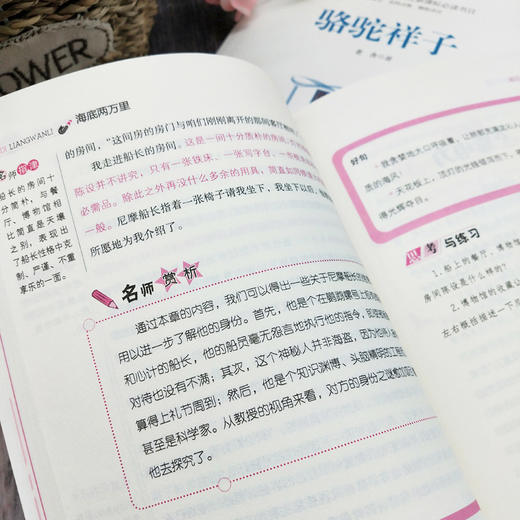 OWER
必读书目
骆驼祥子
老舍 著
LIANGWANLI
海底两万里
的房间，“这间房的房门与咱们刚刚离开的那间客厅
我走进船长的房间。这是一间十分质朴的房间，
陈设并不讲究，只有一张铁床、一张写字台、一些
必需品。除此之外再没什么多余的用具，简直如同修
一般。尼摩船长指着一张椅子请我坐下，我坐下以后，
所愿地为我介绍了。
名师指津
船长的房间十
分简朴，与餐
厅、博物馆相
比简直是天壤
之别，表现出
了船长性格中克
制、严谨、不重
享乐的一面。
名师赏析
通过本章的内容，我们可以得出一些关于尼摩船长的
用以进一步了解他的身份。首先，他是个在鹦鹉螺号上
和心计的船长，他的船员毫无怨言地执行他的指令，
对待也没有不满；其次，这个神秘人并非海盗，因为他
算得上礼节周到；然后，他是个知识渊博、头脑精明的工程
甚至是科学家。从教授的视角来看，对方的身份之谜愈
他去探究了。
好句
虎的海风！
得光辉夺目。
思考与练习
1. 船上的餐厅、博物
房间陈设是什么样的？
2. 博物馆的收藏
左右概括描述一下